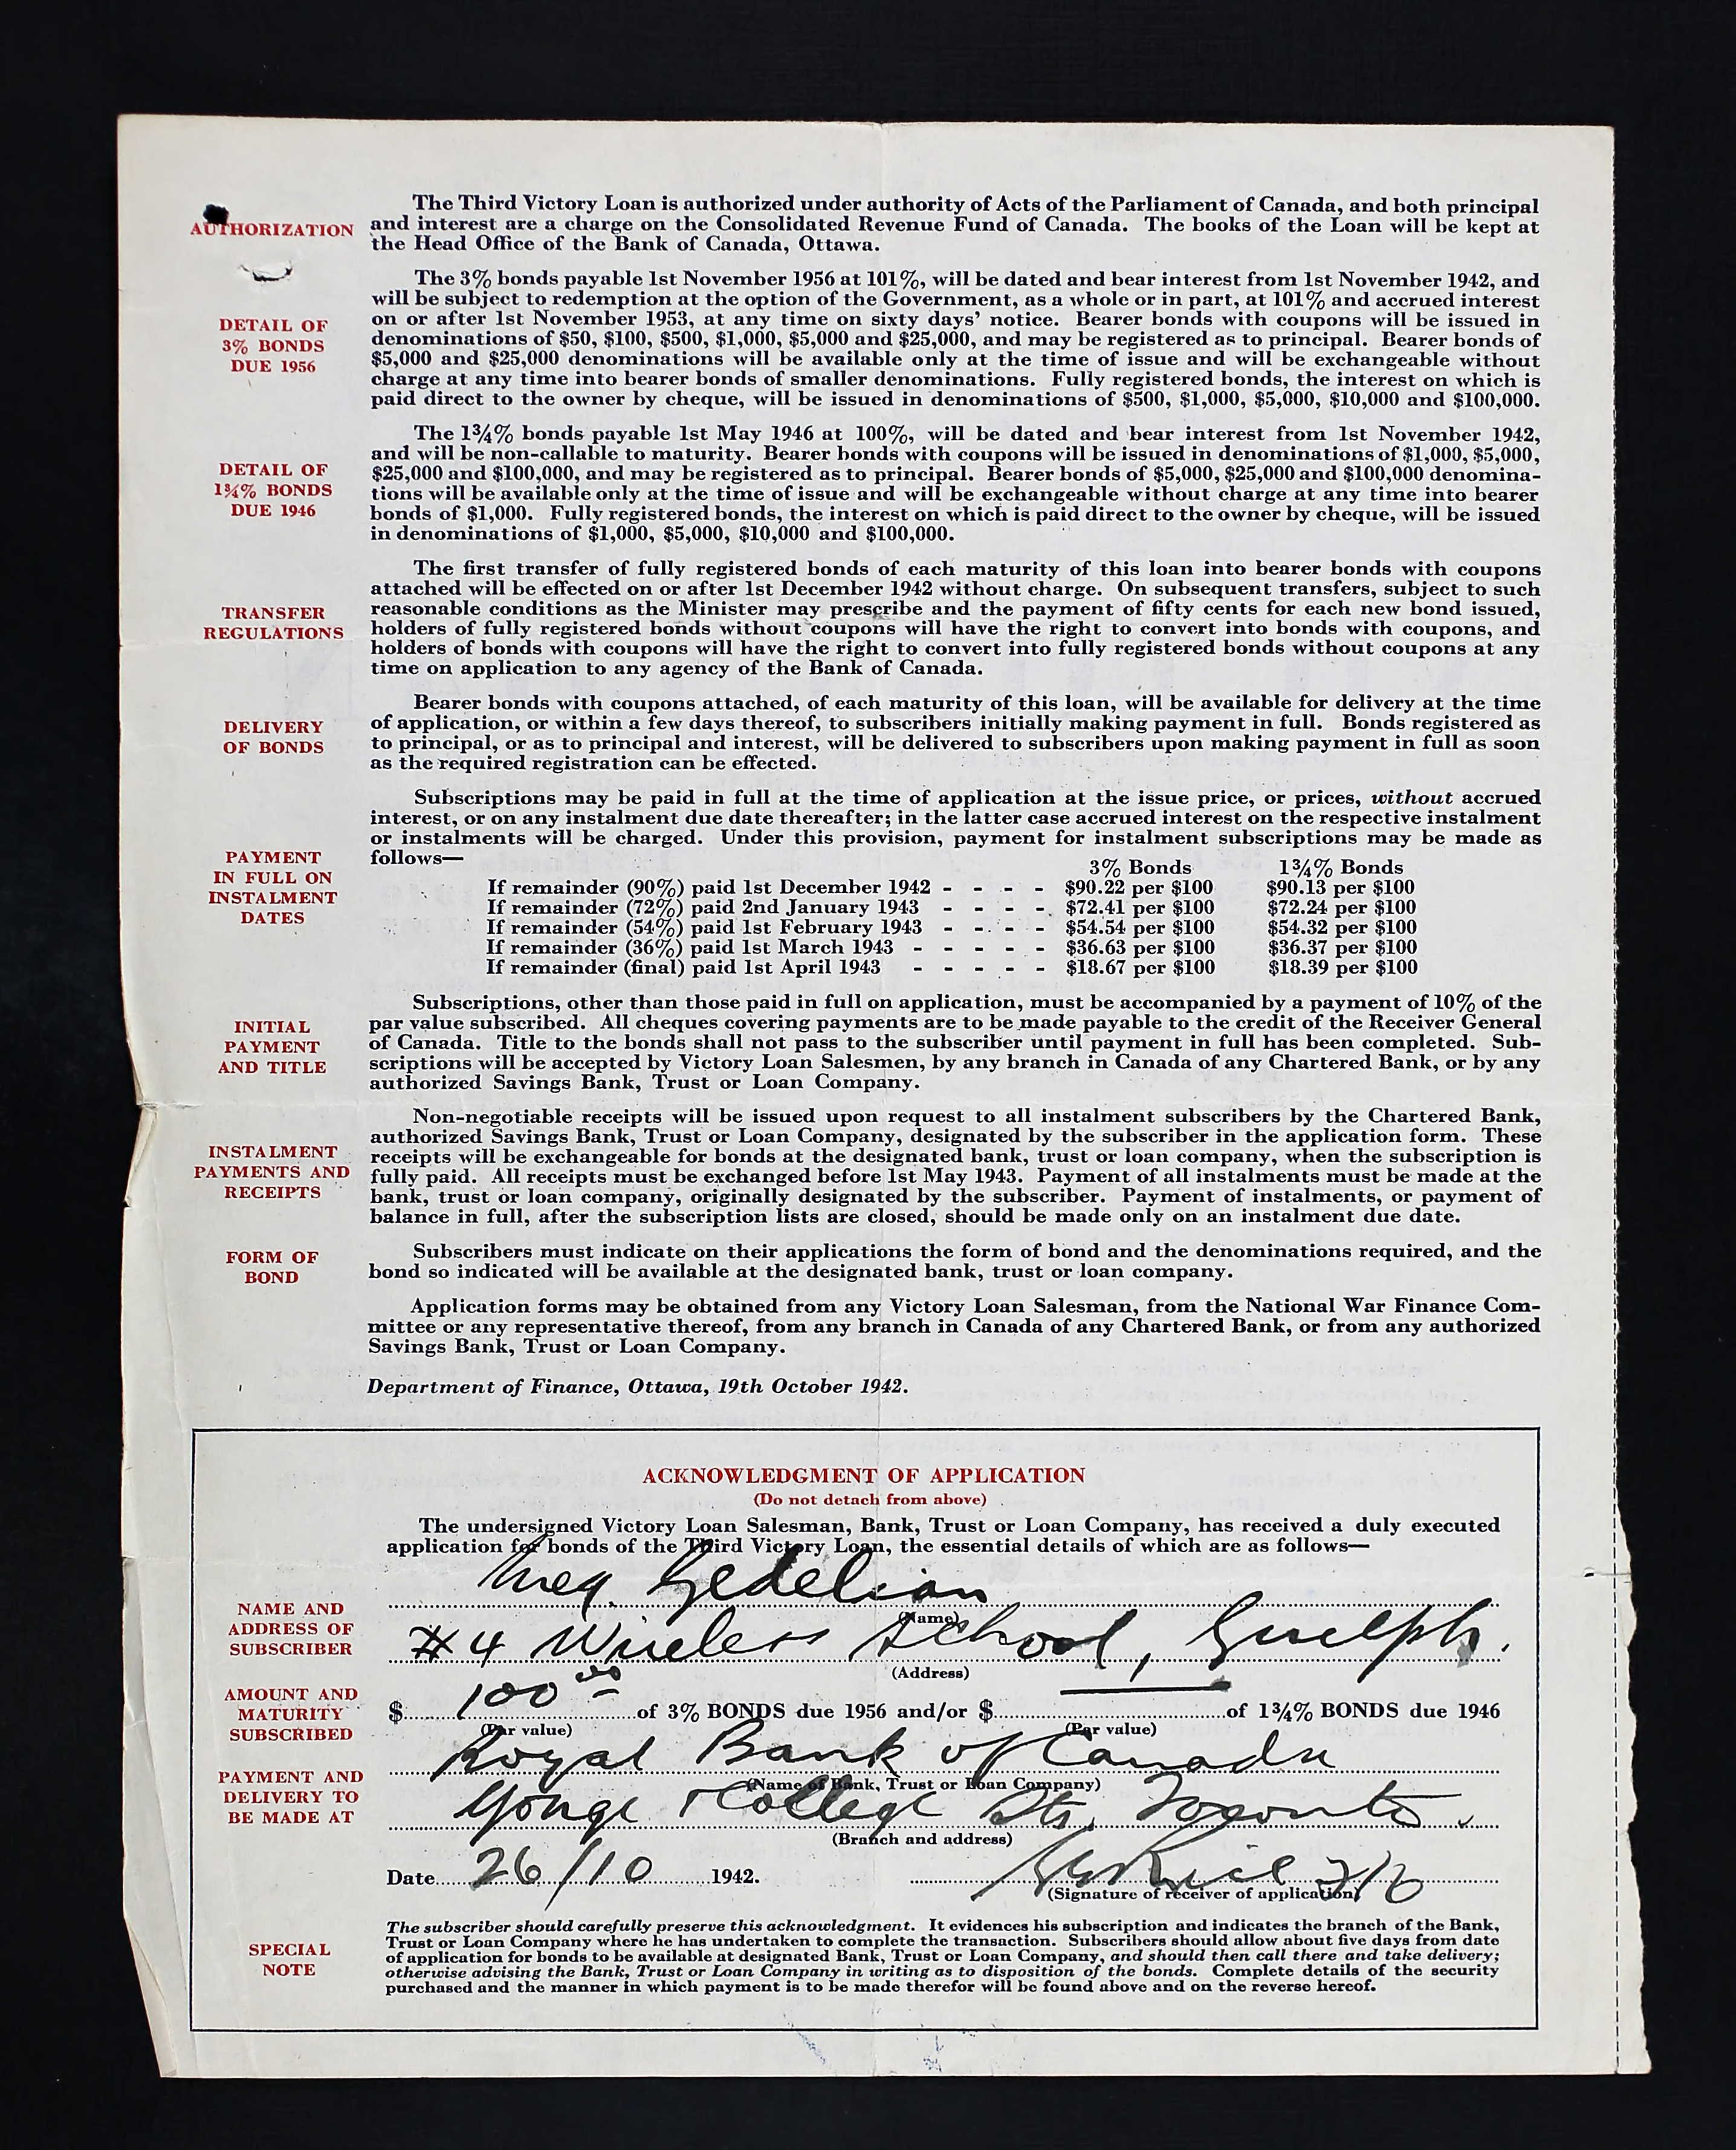 The Third Victory Loan is authorized under authority of Acts of the Parliament of Canada, and both principal
AUTHORIZATION and interest are a charge on the Consolidated Revenue Fund of Canada. The books of the Loan will be kept at
the Head Office of the Bank of Canada, Ottawa.
DETAIL OF
3% BONDS
DUE 1956
The 3% bonds payable 1st November 1956 at 101%, will be dated and bear interest from 1st November 1942, and
will be subject to redemption at the option of the Government, as a whole or in part, at 101% and accrued interest
on or after 1st November 1953, at any time on sixty days' notice. Bearer bonds with coupons will be issued in
denominations of $50, $100, $500, $1,000, $5,000 and $25,000, and may be registered as to principal. Bearer bonds of
$5,000 and $25,000 denominations will be available only at the time of issue and will be exchangeable without
charge at any time into bearer bonds of smaller denominations. Fully registered bonds, the interest on which is
paid direct to the owner by cheque, will be issued in denominations of $500, $1,000, $5,000, $10,000 and $100,000.
DETAIL OF
1¾% BONDS
DUE 1946
The 1¾% bonds payable 1st May 1946 at 100%, will be dated and bear interest from 1st November 1942,
and will be non-callable to maturity. Bearer bonds with coupons will be issued in denominations of $1,000, $5,000,
$25,000 and $100,000, and may be registered as to principal. Bearer bonds of $5,000, $25,000 and $100,000 denomina-
tions will be available only at the time of issue and will be exchangeable without charge at any time into bearer
bonds of $1,000. Fully registered bonds, the interest on which is paid direct to the owner by cheque, will be issued
in denominations of $1,000, $5,000, $10,000 and $100,000.
TRANSFER
REGULATIONS
The first transfer of fully registered bonds of each maturity of this loan into bearer bonds with coupons
attached will be effected on or after 1st December 1942 without charge. On subsequent transfers, subject to such
reasonable conditions as the Minister may prescribe and the payment of fifty cents for each new bond issued,
holders of fully registered bonds without coupons will have the right to convert into bonds with coupons, and
holders of bonds with coupons will have the right to convert into fully registered bonds without coupons at any
time on application to any agency of the Bank of Canada.
DELIVERY
OF BONDS
Bearer bonds with coupons attached, of each maturity of this loan, will be available for delivery at the time
of application, or within a few days thereof, to subscribers initially making payment in full. Bonds registered as
to principal, or as to principal and interest, will be delivered to subscribers upon making payment in full as soon
as the required registration can be effected.
PAYMENT
IN FULL ON
INSTALMENT
DATES
Subscriptions may be paid in full at the time of application at the issue price, or prices, without accrued
interest, or on any instalment due date thereafter; in the latter case accrued interest on the respective instalment
or instalments will be charged. Under this provision, payment for instalment subscriptions may be made as
follows—
3% Bonds 1¾% Bonds
If remainder (90%) paid 1st December 1942 - - - - $90.22 per $100 $90.13 per $100
If remainder (72%) paid 2nd January 1943 - - - - $72.41 per $100 $72.24 per $100
If remainder (54%) paid 1st February 1943 - - - - $54.54 per $100 $54.32 per $100
If remainder (36%) paid 1st March 1943 - - - - - $36.63 per $100 $36.37 per $100
If remainder (final) paid 1st April 1943 - - - - - $18.67 per $100 $18.39 per $100
INITIAL
PAYMENT
AND TITLE
Subscriptions, other than those paid in full on application, must be accompanied by a payment of 10% of the
par value subscribed. All cheques covering payments are to be made payable to the credit of the Receiver General
of Canada. Title to the bonds shall not pass to the subscriber until payment in full has been completed. Sub-
scriptions will be accepted by Victory Loan Salesmen, by any branch in Canada of any Chartered Bank, or by any
authorized Savings Bank, Trust or Loan Company.
INSTALMENT
PAYMENTS AND
RECEIPTS
Non-negotiable receipts will be issued upon request to all instalment subscribers by the Chartered Bank,
authorized Savings Bank, Trust or Loan Company, designated by the subscriber in the application form. These
receipts will be exchangeable for bonds at the designated bank, trust or loan company, when the subscription is
fully paid. All receipts must be exchanged before 1st May 1943. Payment of all instalments must be made at the
bank, trust or loan company, originally designated by the subscriber. Payment of instalments, or payment of
balance in full, after the subscription lists are closed, should be made only on an instalment due date.
FORM OF
BOND
Subscribers must indicate on their applications the form of bond and the denominations required, and the
bond so indicated will be available at the designated bank, trust or loan company.
Application forms may be obtained from any Victory Loan Salesman, from the National War Finance Com-
mittee or any representative thereof, from any branch in Canada of any Chartered Bank, or from any authorized
Savings Bank, Trust or Loan Company.
Department of Finance, Ottawa, 19th October 1942.
ACKNOWLEDGMENT OF APPLICATION
(Do not detach from above)
The undersigned Victory Loan Salesman, Bank, Trust or Loan Company, has received a duly executed
application for bonds of the Third Victory Loan, the essential details of which are as follows—
NAME AND
ADDRESS OF
SUBSCRIBER
Gedelian
(Name)
#4 Wireless School, Guelph.
(Address)
AMOUNT AND
MATURITY
SUBSCRIBED
$ 100 00 of 3% BONDS due 1956 and/or $ of 1¾% BONDS due 1946
(Par value) (Par value)
PAYMENT AND
DELIVERY TO
BE MADE AT
Royal Bank of Canada
(Name of Bank, Trust or Loan Company)
Yonge & College Sts. Toronto.
(Branch and address)
Date 26/10 1942.
(Signature of receiver of application)
SPECIAL
NOTE
The subscriber should carefully preserve this acknowledgment. It evidences his subscription and indicates the branch of the Bank,
Trust or Loan Company where he has undertaken to complete the transaction. Subscribers should allow about five days from date
of application for bonds to be available at designated Bank, Trust or Loan Company, and should then call there and take delivery;
otherwise advising the Bank, Trust or Loan Company in writing as to disposition of the bonds. Complete details of the security
purchased and the manner in which payment is to be made therefor will be found above and on the reverse hereof.